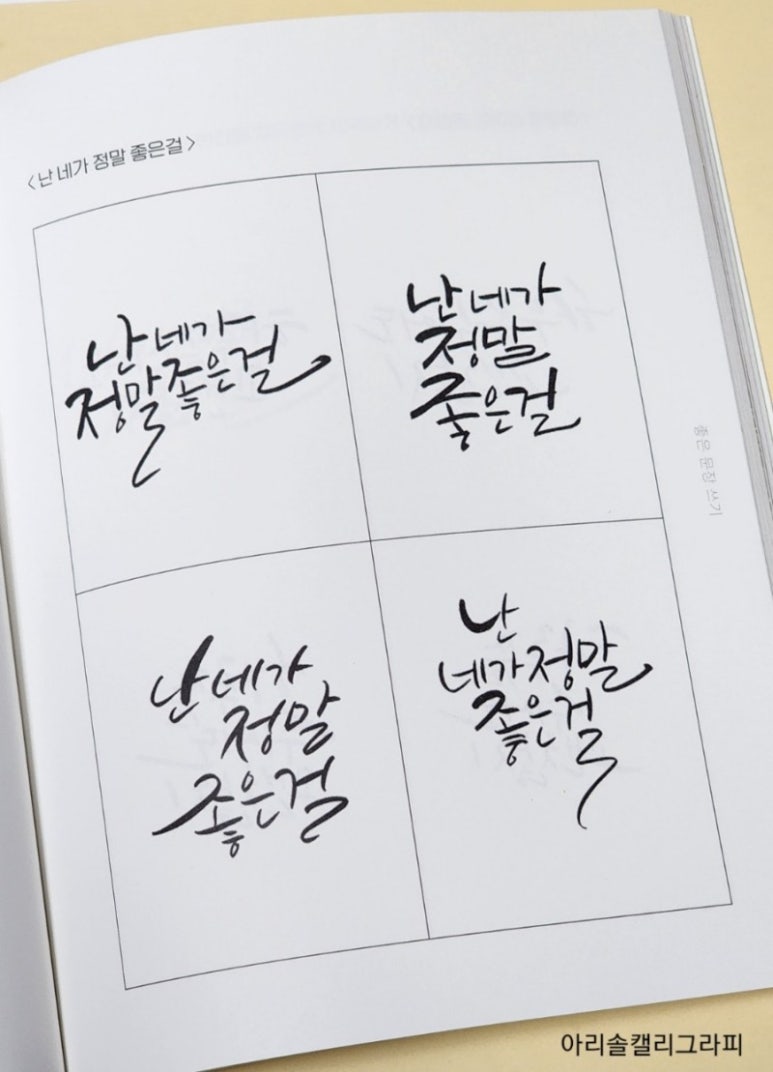 <난 네가 정말 좋은걸>
난 네가
정말 좋은걸
난 네가
정말
좋은걸
난 네가
정말
좋은걸
난
네가 정말
좋은걸
좋은 문장 쓰기
아리솔캘리그라피